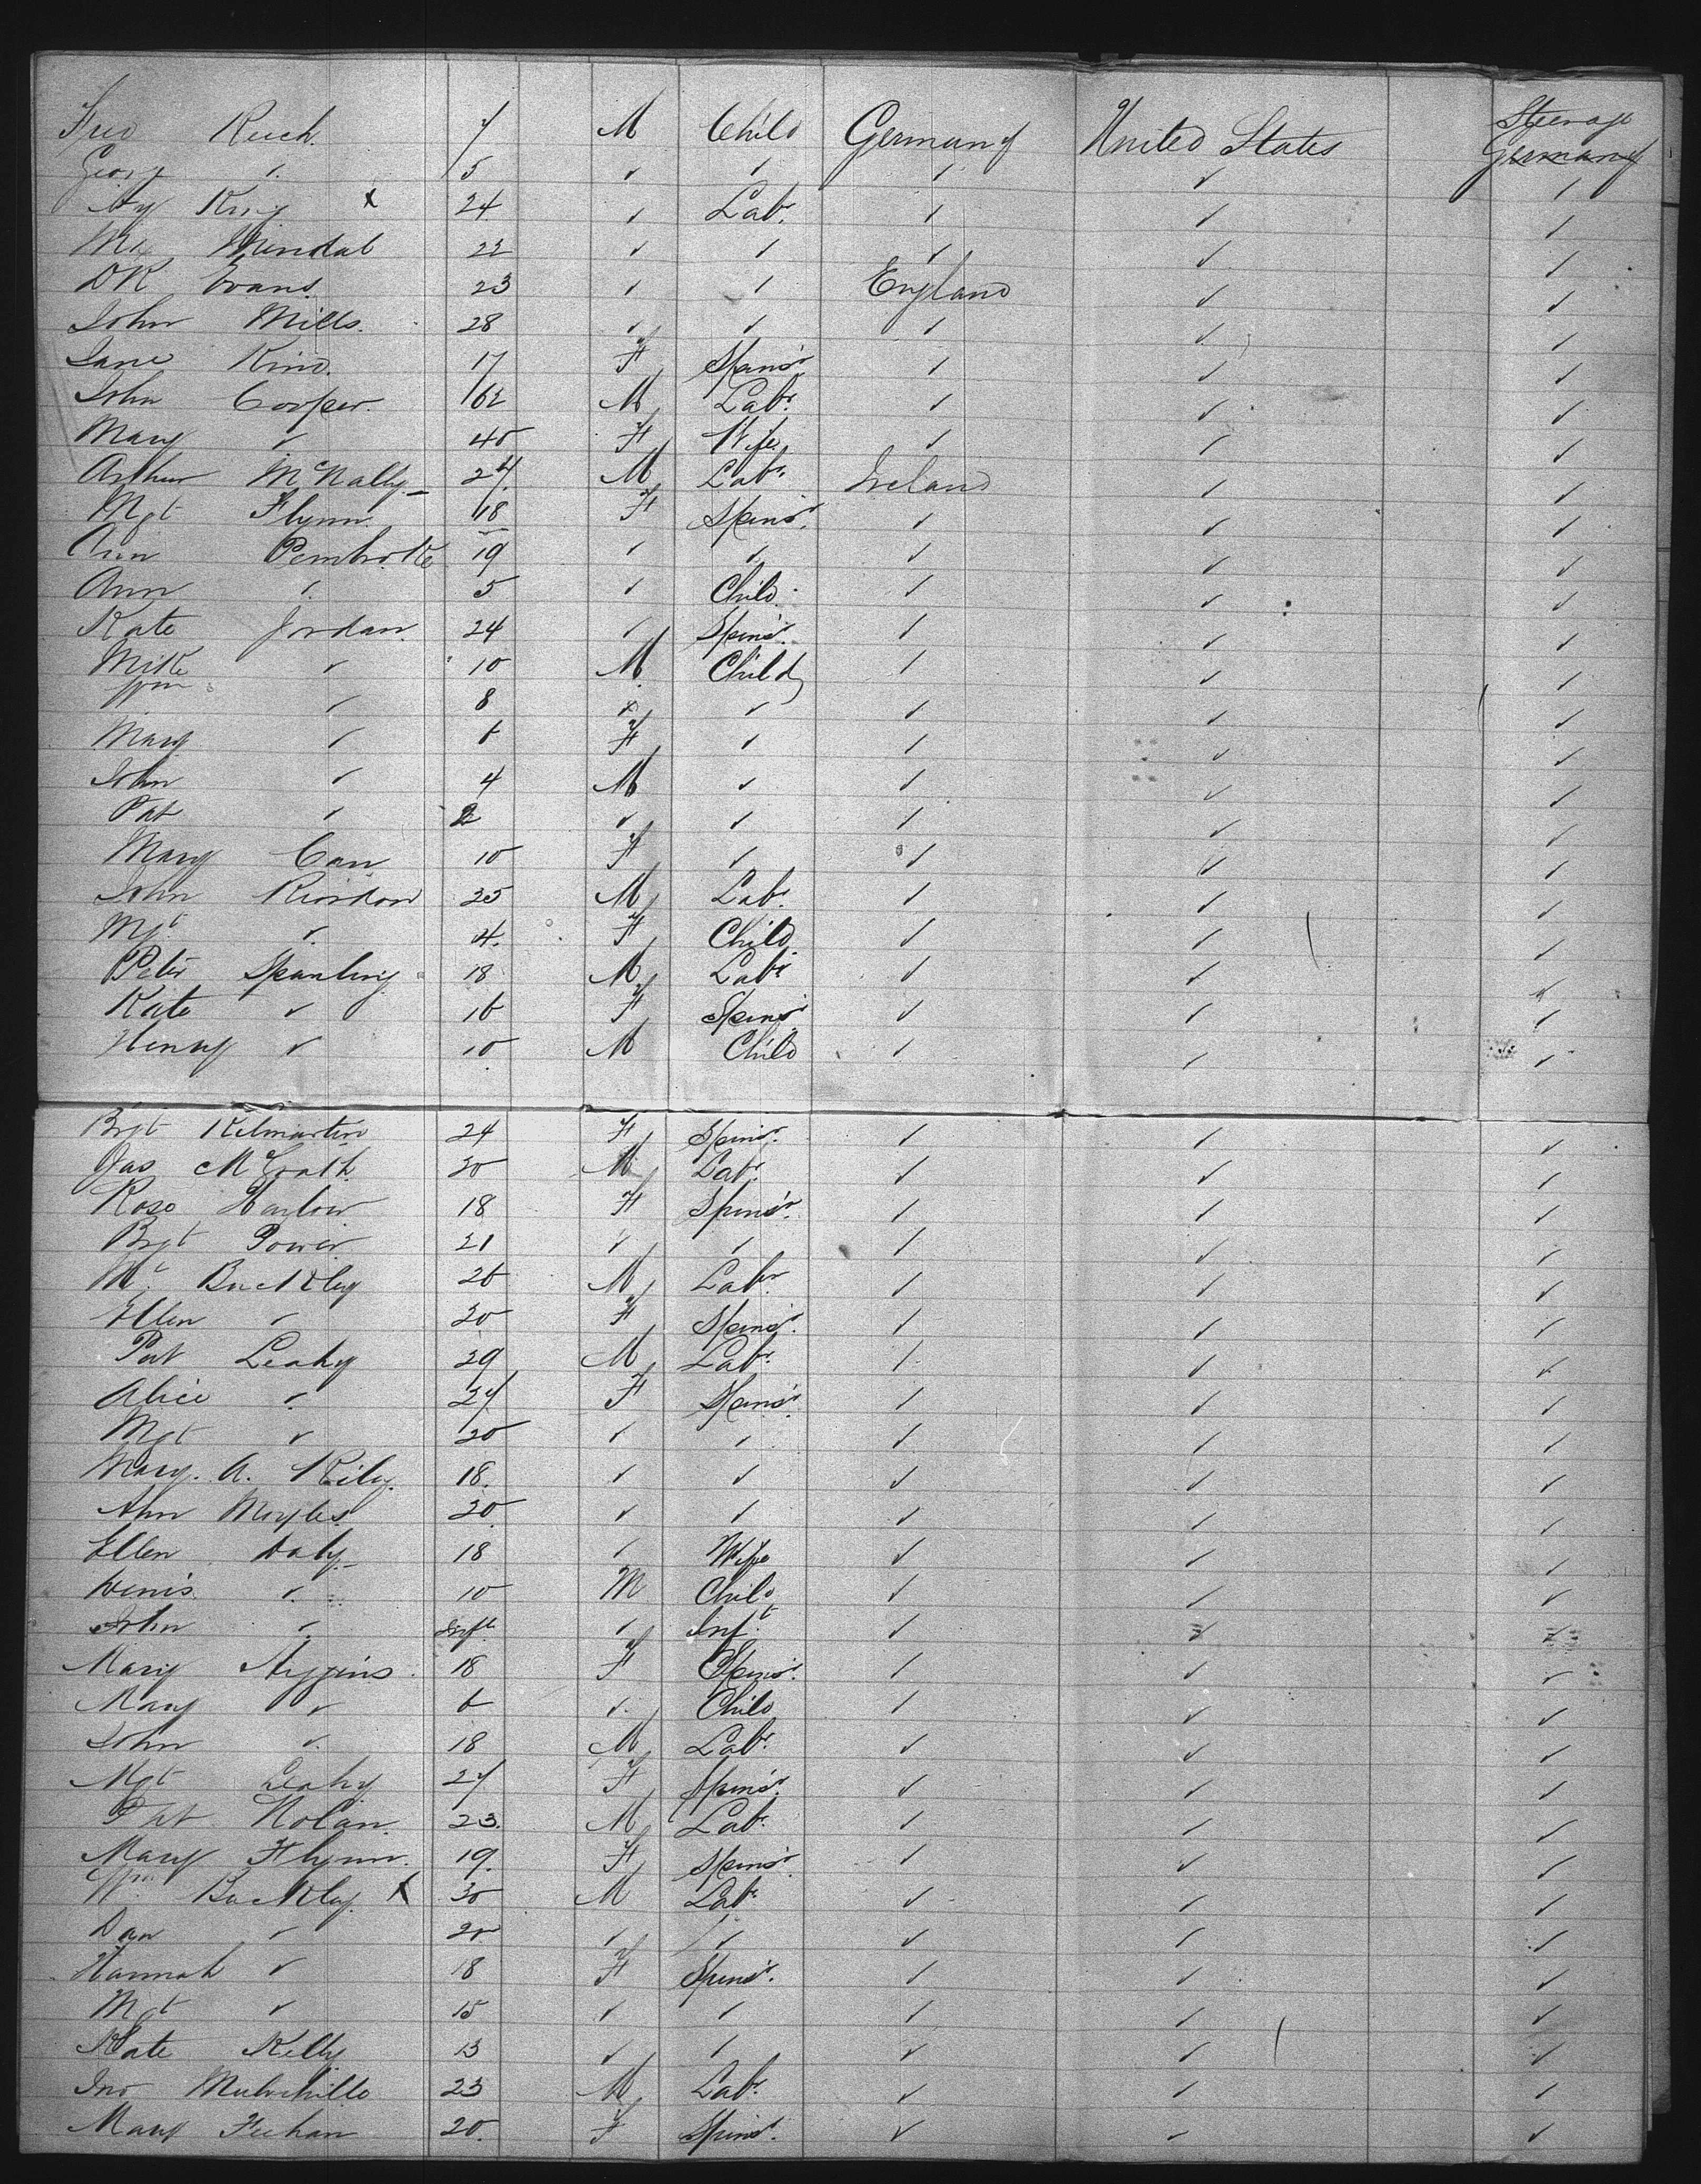 Fred Reich. 7 M Child Germany United States Steerage
Georg ✓ 5 ✓ ✓ ✓ ✓ Germany ✓
Hy King x 24 ✓ Labr. ✓ ✓ ✓
22 ✓ ✓ ✓ ✓ ✓
DK Evans. 23 ✓ ✓ England ✓ ✓
John Mills. 28 ✓ ✓ ✓ ✓ ✓
Jane King. 17 F Spinsr. ✓ ✓ ✓
John Cooper. 62 M Labr. ✓ ✓ ✓
Mary ✓ 40 F Wife ✓ ✓ ✓
Arthur McNally 27 M Labr. Ireland ✓ ✓
Mgt Flynn. 18 F Spinsr. ✓ ✓ ✓
Ann Pembroke 19 ✓ ✓ ✓ ✓ ✓
Ann ✓ 5 ✓ Child. ✓ ✓ ✓
Kate Jordan. 24 ✓ Spinsr. ✓ ✓ ✓
Mike ✓ 10 M Child ✓ ✓ ✓
Wm ✓ 8 ✓ ✓ ✓ ✓ ✓
Mary ✓ 6 F ✓ ✓ ✓ ✓
John ✓ 4 M ✓ ✓ ✓ ✓
Pat ✓ 2 ✓ ✓ ✓ ✓ ✓
Mary Carr 10 F ✓ ✓ ✓ ✓
John Riordan 25 M Labr. ✓ ✓ ✓
Mgt ✓ 4. F Child ✓ ✓ ✓
Peter Spauling 18 M Labr ✓ ✓ ✓
Kate ✓ 16 F Spinsr ✓ ✓ ✓
Henry ✓ 10 M Child ✓ ✓ ✓
Bgt Kilmartin 24 F Spinsr. ✓ ✓ ✓
Jas McGrath 30 M Labr. ✓ ✓ ✓
Rose Harlow 18 F Spinsr. ✓ ✓ ✓
Bgt Power 21 ✓ ✓ ✓ ✓ ✓
Buckley 26 M Labr. ✓ ✓ ✓
Ellen ✓ 30 F Spinsr. ✓ ✓ ✓
Pat Leahy 29 M Labr. ✓ ✓ ✓
Alice ✓ 27 F Spinsr. ✓ ✓ ✓
Mgt ✓ 20 ✓ ✓ ✓ ✓ ✓
Mary. A. Riley. 18. ✓ ✓ ✓ ✓ ✓
Ann Moyles 20 ✓ ✓ ✓ ✓ ✓
Ellen Daly 18 ✓ Wife ✓ ✓ ✓
Denis. ✓ 10 M Child ✓ ✓ ✓
John ✓ Inft. ✓ Inft. ✓ ✓ ✓
Mary Higgins 18 F Spinsr. ✓ ✓ ✓
Mary ✓ 6 ✓ Child ✓ ✓ ✓
John ✓ 18 M Labr. ✓ ✓ ✓
Mgt Leahy 27 F Spinsr. ✓ ✓ ✓
Pat Nolan 23. M Labr. ✓ ✓ ✓
Mary Flynn. 19. F Spinsr. ✓ ✓ ✓
Wm Buckley. x 30 M Labr. ✓ ✓ ✓
Dan ✓ 20 ✓ ✓ ✓ ✓ ✓
Hannah ✓ 18 F Spinsr. ✓ ✓ ✓
Mgt ✓ 15 ✓ ✓ ✓ ✓ ✓
Kate Kelly 13 ✓ ✓ ✓ ✓ ✓
Jno Mulvihille 23 M Labr. ✓ ✓ ✓
Mary Feehan 20. F Spinsr. ✓ ✓ ✓